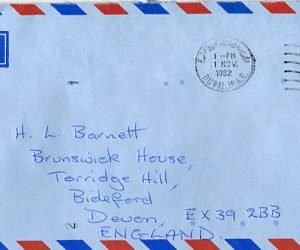 1 - PM
1 NOV.
1982
DUBAI. U.A.E.
1
H. L. Barnett
Brunswick House,
Torridge Hill,
Bideford
Devon, EX39 2BB
ENGLAND.
2